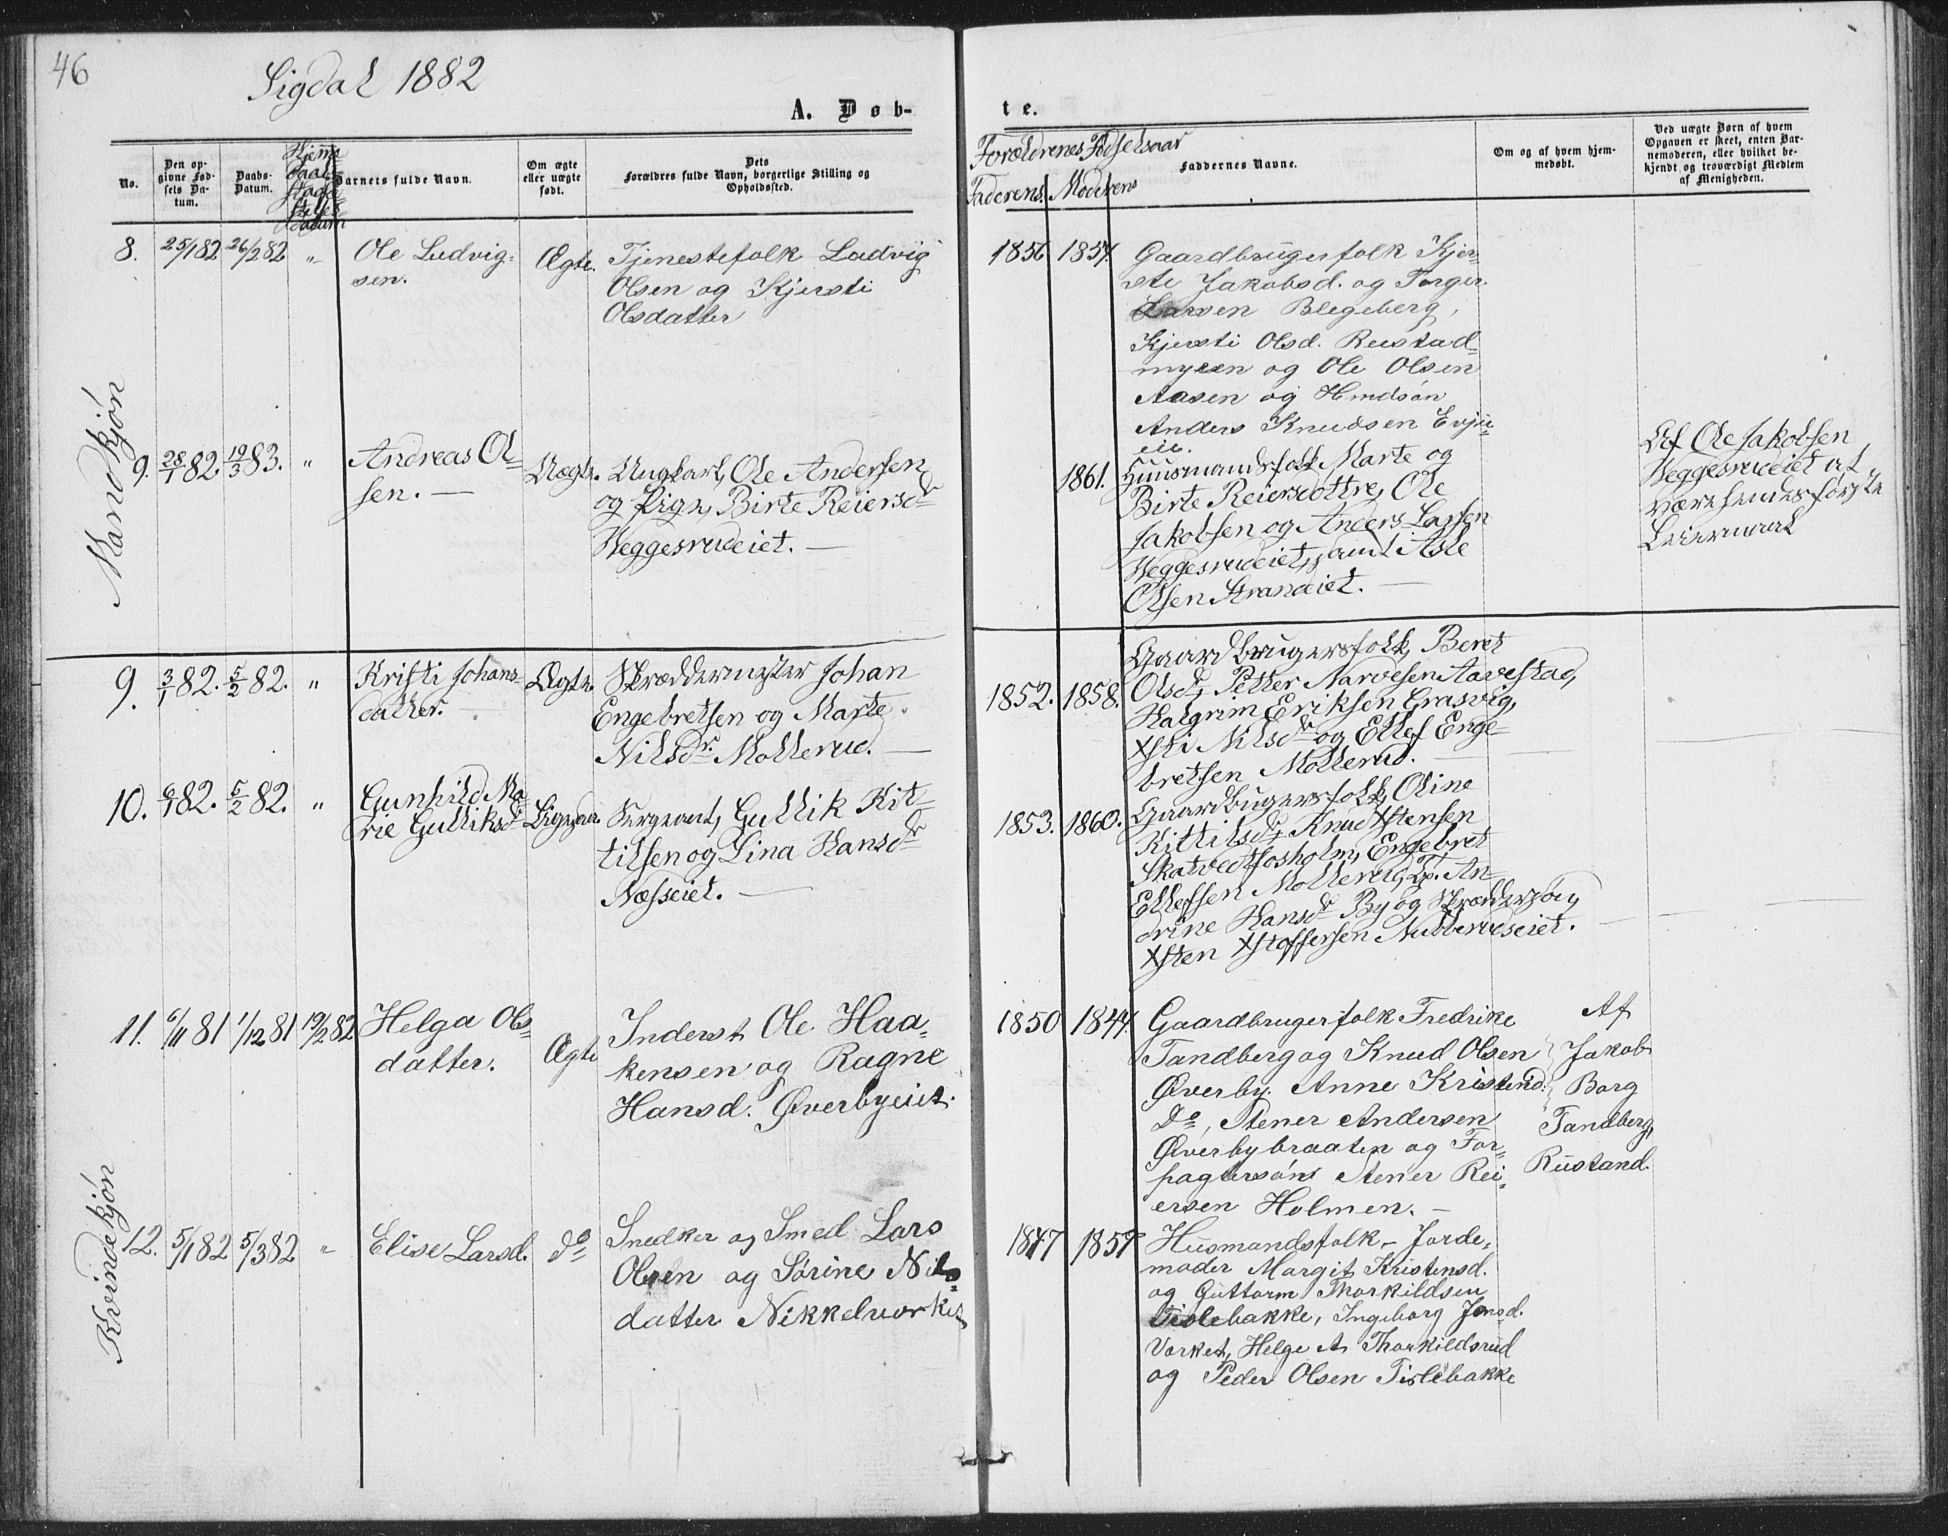 46
Sigdal 1882
A. Døb-
te.
No.
Den op-
givne Fød-
sels Da-
tum.
Daabs-
Datum.
Hjemme
Daab
Stad-
Datum
Barnets fulde Navn.
Om ægte
eller uægte
født.
Dets
Forældres fulde Navn, borgerlige Stilling og
Opholdssted.
Forældrenes Fødselsaar
Faderens. Moderens
Faddernes Navne.
Om og af hvem hjem-
medøbt.
Ved uægte Børn af hvem
Opgaven er skeet, enten Bar-
nemoderen, eller hvilket be-
kjendt og troværdigt Medlem
af Menigheden.
Mandkjøn
8. 25/1 82 26/2 82 "
Ole Ludvig-
sen.
Ægte.
Tjenestefolk Ludvig
Olsen og Kjersti
Olsdatter
1856 1857.
Gaardbrugerfolk Kjer-
sti Jakobsd. og Torger
Larsen Blegeberg,
Kjersti Olsd. Rustad-
myren og Ole Olsen
Aasen og
Anders Knudsen Evju-
eie.
9. 28/1 82. 19/3 83. "
Andreas Ol-
sen. —
Uægte.
Ungkarl, Ole Andersen
og Pige, Birte Reiersdr
Veggesrudeiet. —
1861.
Huusmandsfolk Marte og
Birte Reiersdøttre, Ole
Jakobsen og Anders Larsen
Veggesrudeiet, samt Asle
Olsen Strandeiet. —
Af Ole Jakobsen
Veggesrudeiet at
være hendes første
Leiermaal
Kvindekjøn
9. 3/1 82. 5/2 82. "
Kristi Johans-
datter. —
Ægte.
Skræddermester Johan
Engebretsen og Marte
Nilsdr. Mollerud. —
1852. 1858.
Gaardbrugersfolk, Beret
Olsdr, Petter Narvesen Aavestad,
Halgrim Eriksen Grasvig,
Xsti Nilsdr og Ellef Enge-
bretsen Mollerud.
10. 6/1 82. 5/2 82. "
Gunhild Ma-
rie Gulliksdr
Ligesaa
Sergeant, Gullik Kit-
tilsen og Lina Hansdr
Næsseiet. —
1853. 1860.
Gaardbugersfolk, Oline
Kittilsdr, Knud Xstensen
Skatvedtfosholm, Engebret
Ellefsen Mollerud, Tp. An-
drine Hansdr By og Skræddersøn,
Xsten Xstoffersen Nubberudseiet.
11. 6/11 81 1/12 81 19/2 82
Helga Ols-
datter.
Ægte
Inderst Ole Haa-
kensen og Ragne
Hansd. Øverbyeiet.
1850 1847.
Gaardbrugerfolk Fredrike
Tandberg og Knud Olsen
Øverby. Anne Kristensd.
Do, Stener Andersen
Øverbybraaten og For-
pagtersøns Stener Rei-
ersen Holmen. —
Af
Jakob
Borg
Tandberg,
Rustand.
12. 5/1 82 5/3 82 "
Elise Larsd.
do
Snedker og Smed Lars
Olsen og Sørine Nils-
datter Nikkelværket
1847 1857
Husmandsfolk – Jorde-
moder Margit Kristensd.
og Guttorm Thorkildsen
Tislebakke, Ingeborg Jonsd.
Værket, Helge A. Thorkildsrud
og Peder Olsen Tislebakke